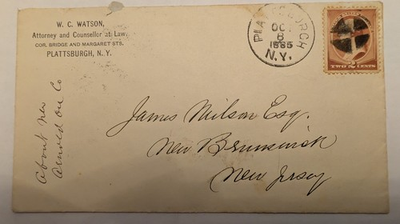 W. C. WATSON,
Attorney and Counsellor at Law,
COR. BRIDGE AND MARGARET STS.
PLATTSBURGH, N. Y.
PLATTSBURGH
OCT
8
1885
N.Y.
TWO 2 CENTS
James Nilson Esq.
New Brunswick
New Jersey
About
on Co